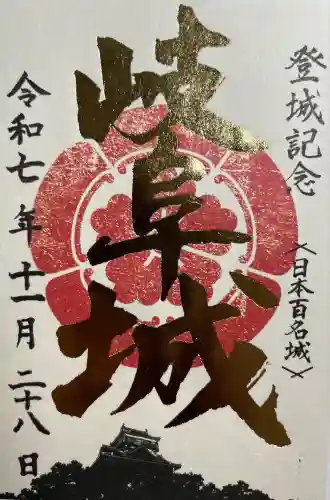 登城記念
<日本百名城>
岐阜城
令和七年十一月二十八日